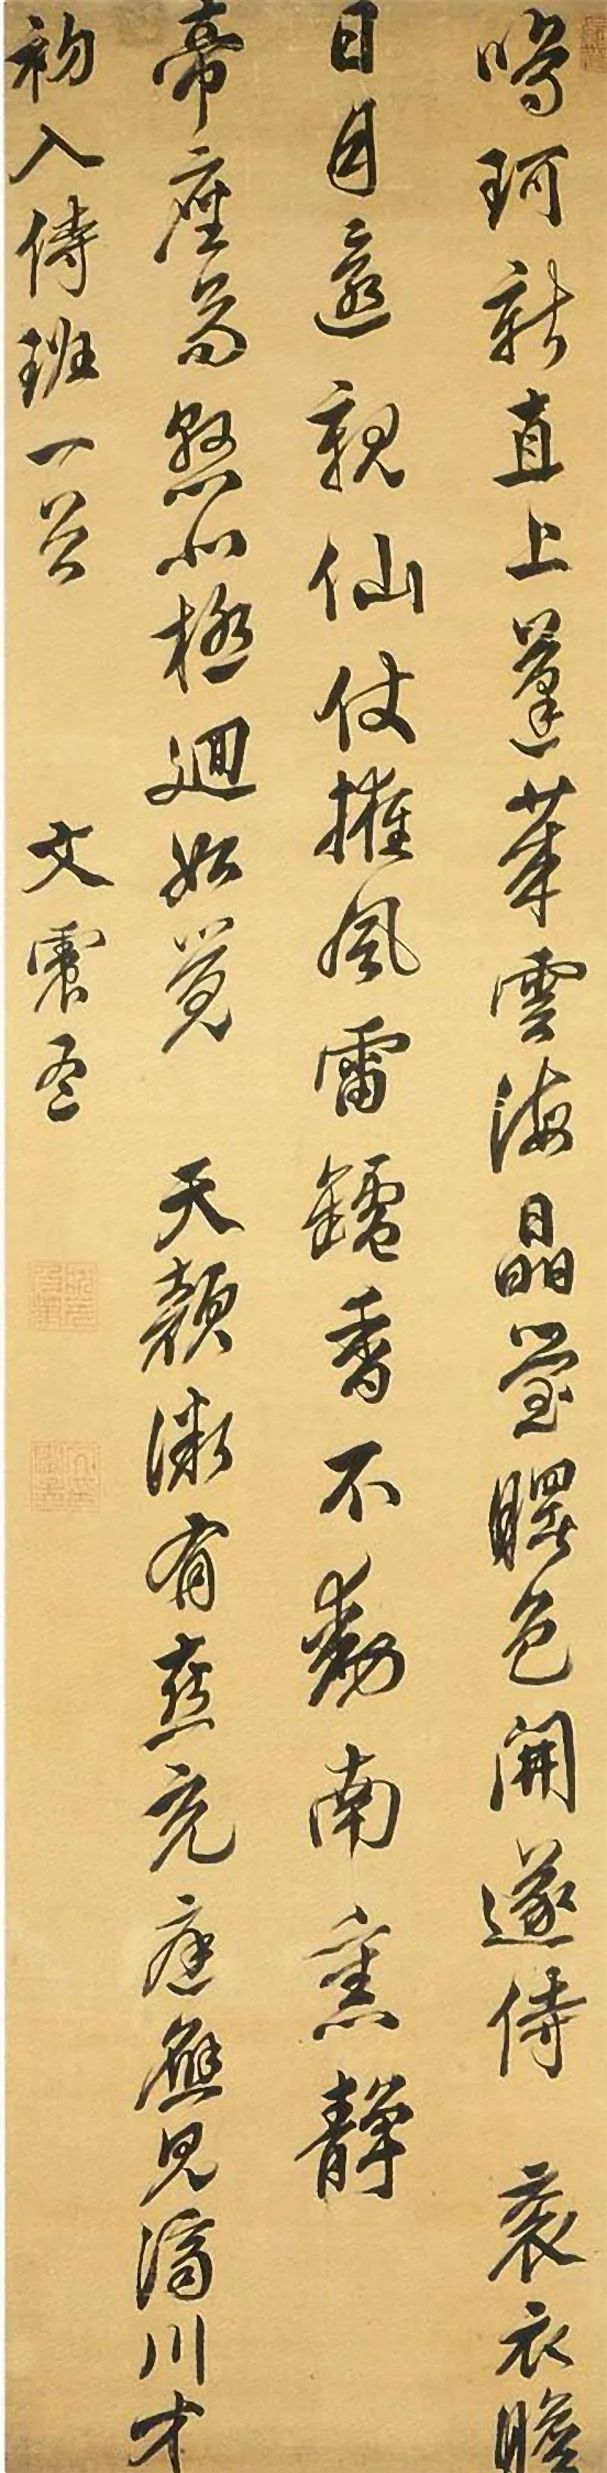 鳴珂新直上蓬萊雲海晶瑩曙色開遂侍袞衣瞻
日月還親仙仗擁風雷鑪香不動南熏靜
帝座高懸北極迴始覺天顏漸有喜充庭應見濟川才
初入侍班一首
文震孟